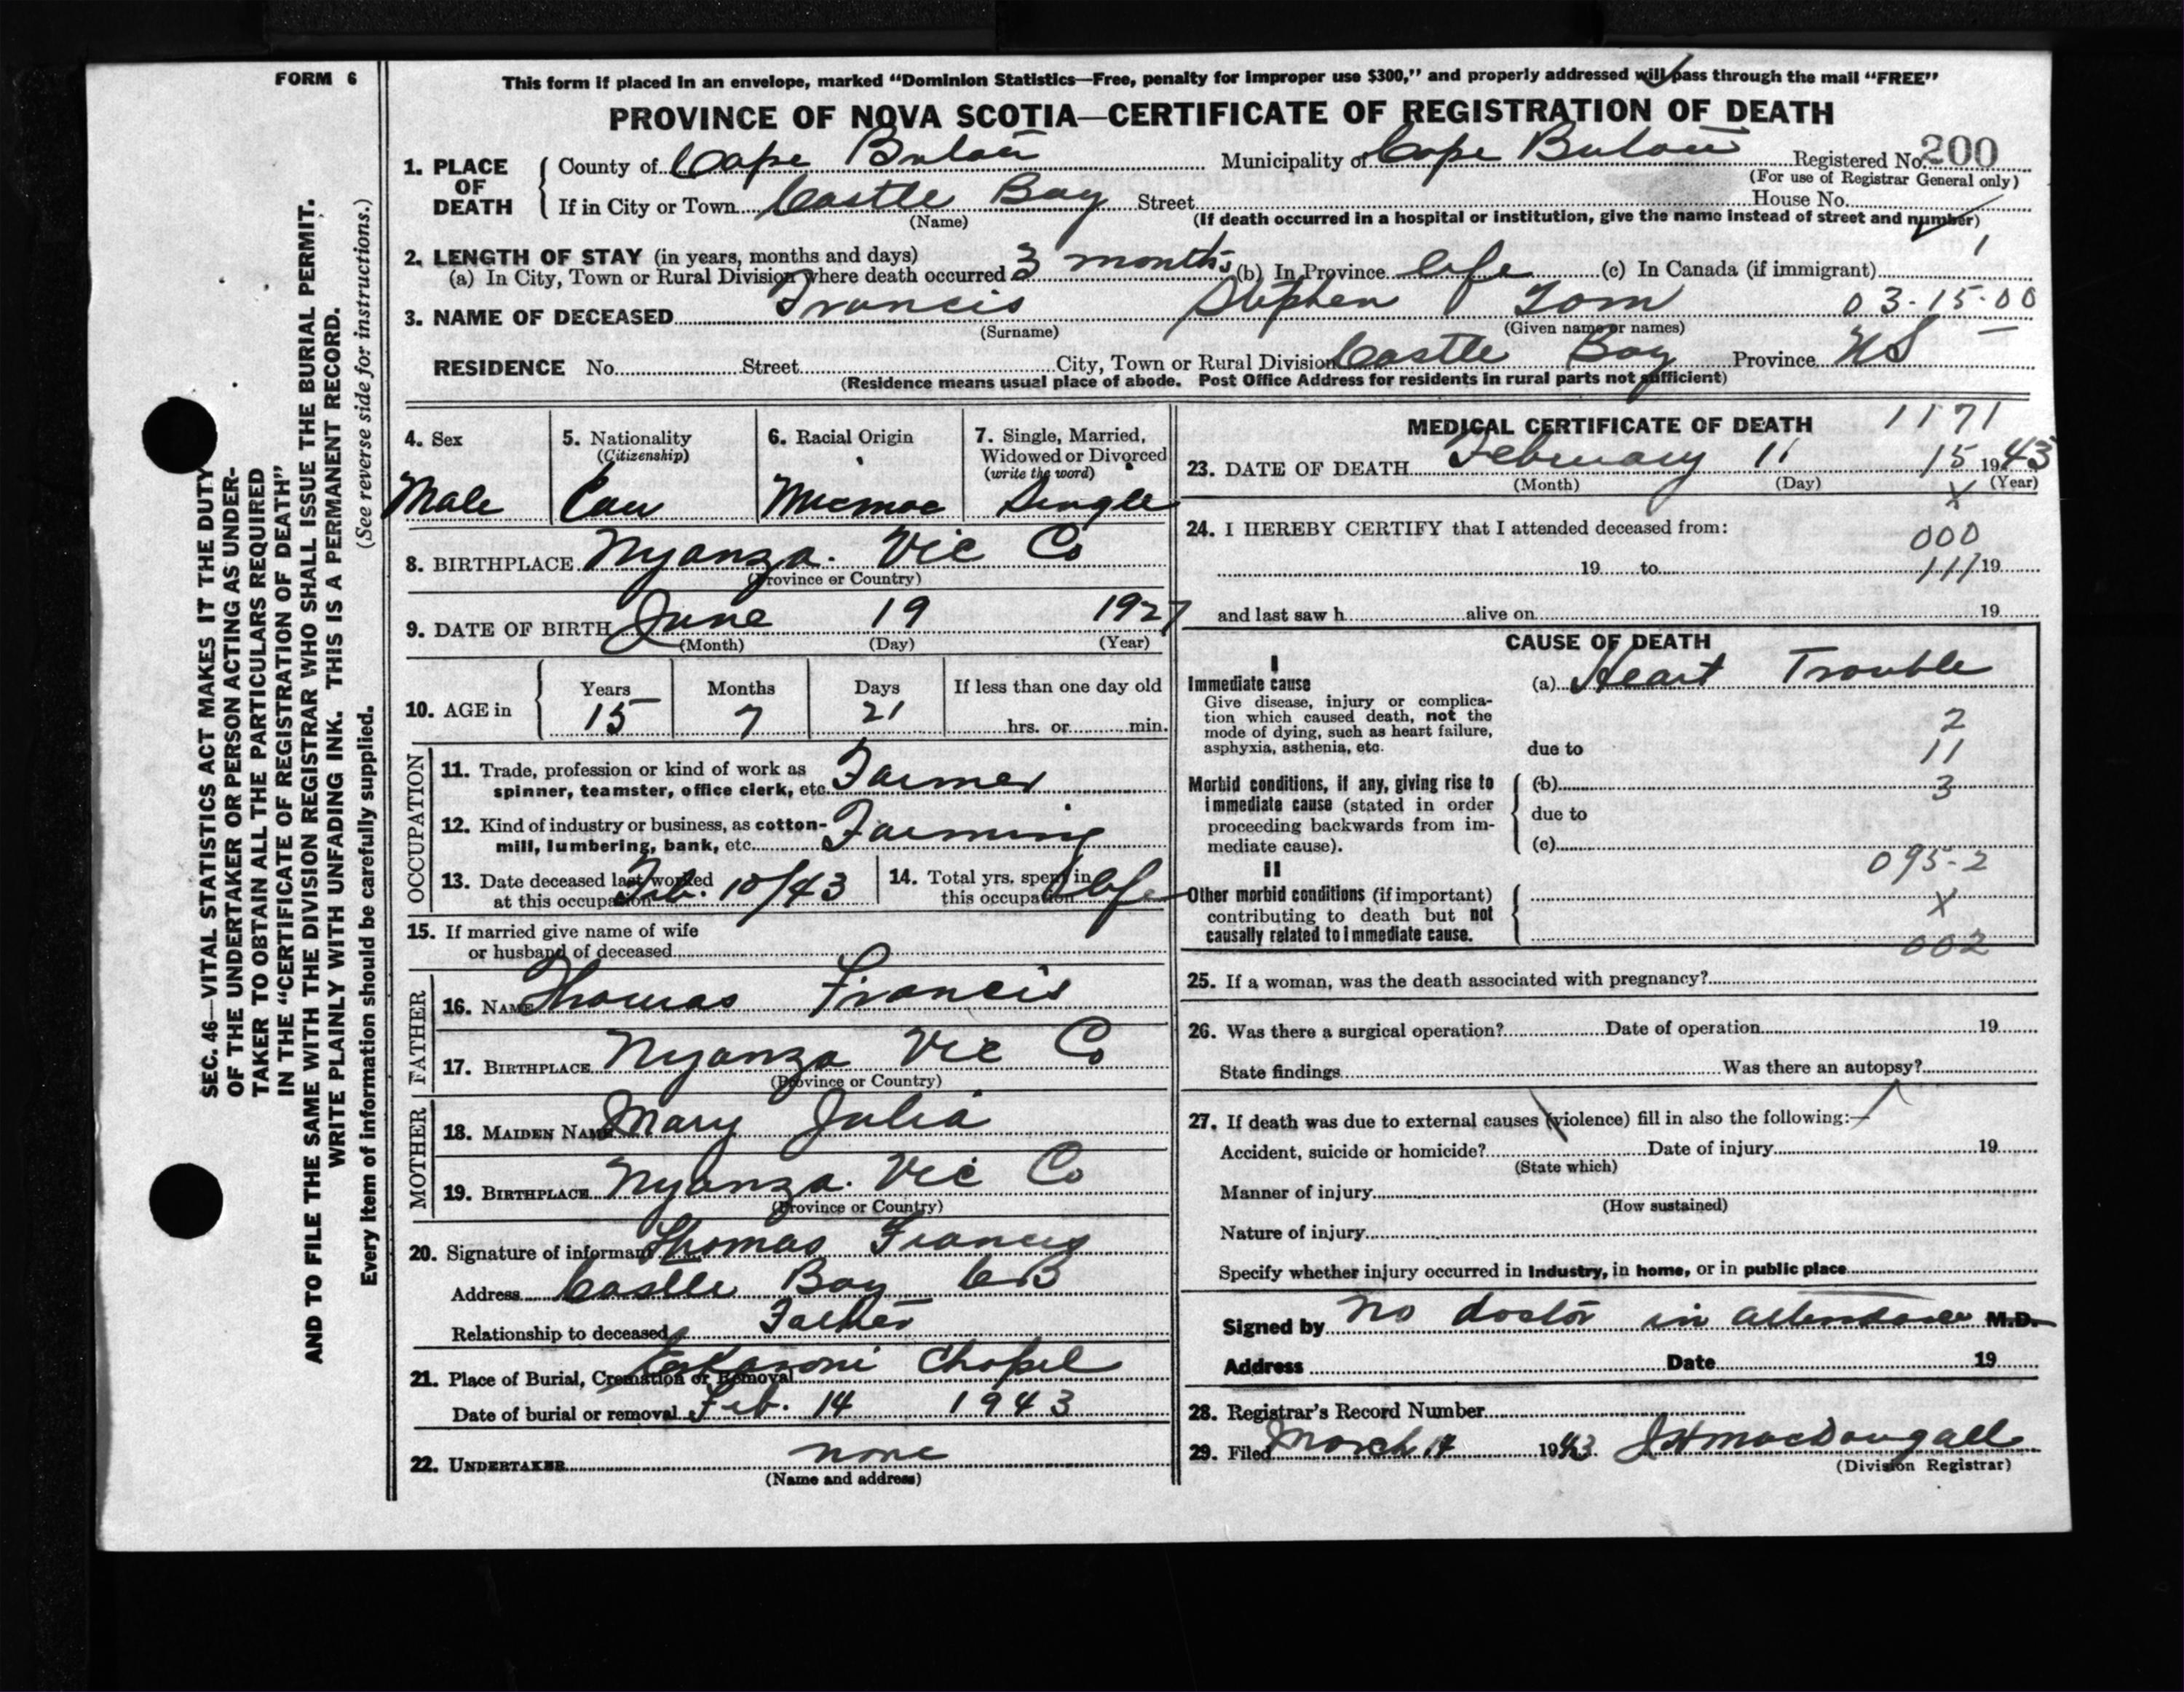 FORM 6
This form if placed in an envelope, marked "Dominion Statistics—Free, penalty for improper use $300," and properly addressed will pass through the mail "FREE"
PROVINCE OF NOVA SCOTIA—CERTIFICATE OF REGISTRATION OF DEATH
1. PLACE OF DEATH County of Cape Breton Municipality of Cape Breton Registered No. 200
(For use of Registrar General only)
If in City or Town Castle Bay Street House No.
(Name) (If death occurred in a hospital or institution, give the name instead of street and number)
1
2. LENGTH OF STAY (in years, months and days)
(a) In City, Town or Rural Division where death occurred 3 months (b) In Province life (c) In Canada (if immigrant)
3. NAME OF DECEASED Francis Stephen Tom 03-15-00
(Surname) (Given name or names)
RESIDENCE No. Street City, Town or Rural Division Castle Bay Province NS
(Residence means usual place of abode. Post Office Address for residents in rural parts not sufficient)
4. Sex 5. Nationality (Citizenship) 6. Racial Origin 7. Single, Married, Widowed or Divorced (write the word)
Male Can Micmac Single
8. BIRTHPLACE Nyanza. Vic Co
(Province or Country)
9. DATE OF BIRTH June 19 1927
(Month) (Day) (Year)
10. AGE in Years Months Days If less than one day old
15 7 21 hrs. or min.
OCCUPATION
11. Trade, profession or kind of work as
spinner, teamster, office clerk, etc. Farmer
12. Kind of industry or business, as cotton-
mill, lumbering, bank, etc. Farming
13. Date deceased last worked
at this occupation Feb. 10/43
14. Total yrs. spent in
this occupation life
15. If married give name of wife
or husband of deceased
FATHER
16. NAME Thomas Francis
17. BIRTHPLACE Nyanza Vic Co
(Province or Country)
MOTHER
18. MAIDEN NAME Mary Julia
19. BIRTHPLACE Nyanza. Vic Co
(Province or Country)
20. Signature of informant Thomas Francis
Address Castle Bay CB
Relationship to deceased Father
21. Place of Burial, Cremation or Removal Eskasoni Chapel
Date of burial or removal Feb. 14 1943
22. UNDERTAKER none
(Name and address)
MEDICAL CERTIFICATE OF DEATH 1171
23. DATE OF DEATH February 11 15 1943
(Month) (Day) (Year)
X
24. I HEREBY CERTIFY that I attended deceased from:
000
19 to 111 19
and last saw h alive on 19
CAUSE OF DEATH
I
Immediate cause (a) Heart Trouble
Give disease, injury or complica-
tion which caused death, not the 2
mode of dying, such as heart failure,
asphyxia, asthenia, etc. due to 11
Morbid conditions, if any, giving rise to (b) 3
immediate cause (stated in order
proceeding backwards from im- due to
mediate cause). (c)
II 095-2
Other morbid conditions (if important)
contributing to death but not X
causally related to immediate cause.
002
25. If a woman, was the death associated with pregnancy?
26. Was there a surgical operation? Date of operation 19
State findings Was there an autopsy?
27. If death was due to external causes (violence) fill in also the following:—
Accident, suicide or homicide? Date of injury 19
(State which)
Manner of injury
(How sustained)
Nature of injury
Specify whether injury occurred in industry, in home, or in public place
Signed by No doctor in attendance M.D.
Address Date 19
28. Registrar's Record Number
29. Filed March 17 1943 J H MacDougall
(Division Registrar)
SEC. 46—VITAL STATISTICS ACT MAKES IT THE DUTY
OF THE UNDERTAKER OR PERSON ACTING AS UNDER-
TAKER TO OBTAIN ALL THE PARTICULARS REQUIRED
IN THE "CERTIFICATE OF REGISTRATION OF DEATH"
AND TO FILE THE SAME WITH THE DIVISION REGISTRAR WHO SHALL ISSUE THE BURIAL PERMIT.
WRITE PLAINLY WITH UNFADING INK. THIS IS A PERMANENT RECORD.
(See reverse side for instructions.)
Every item of information should be carefully supplied.